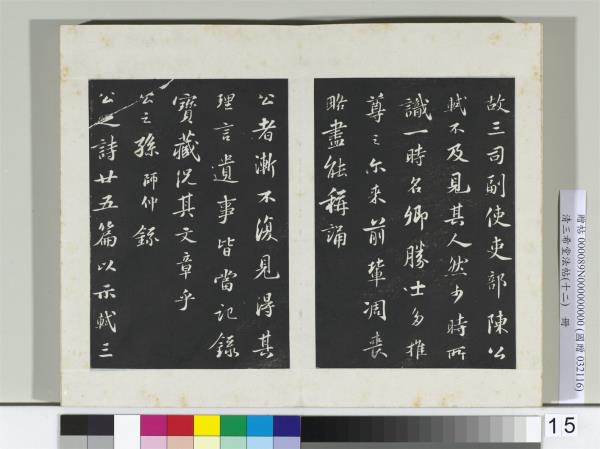 故三司副使吏部陳公
軾不及見其人然少時所
識一時名卿勝士多推
尊之尓来前輩凋喪
略盡能稱誦
公者漸不復見得其
理言遺事皆當記録
寶藏況其文章乎
公之孫師仲録
公之詩廿五篇以示軾三
贈帖 000089N000000000 (國贈 032116)
清三希堂法帖(十二) 冊
15